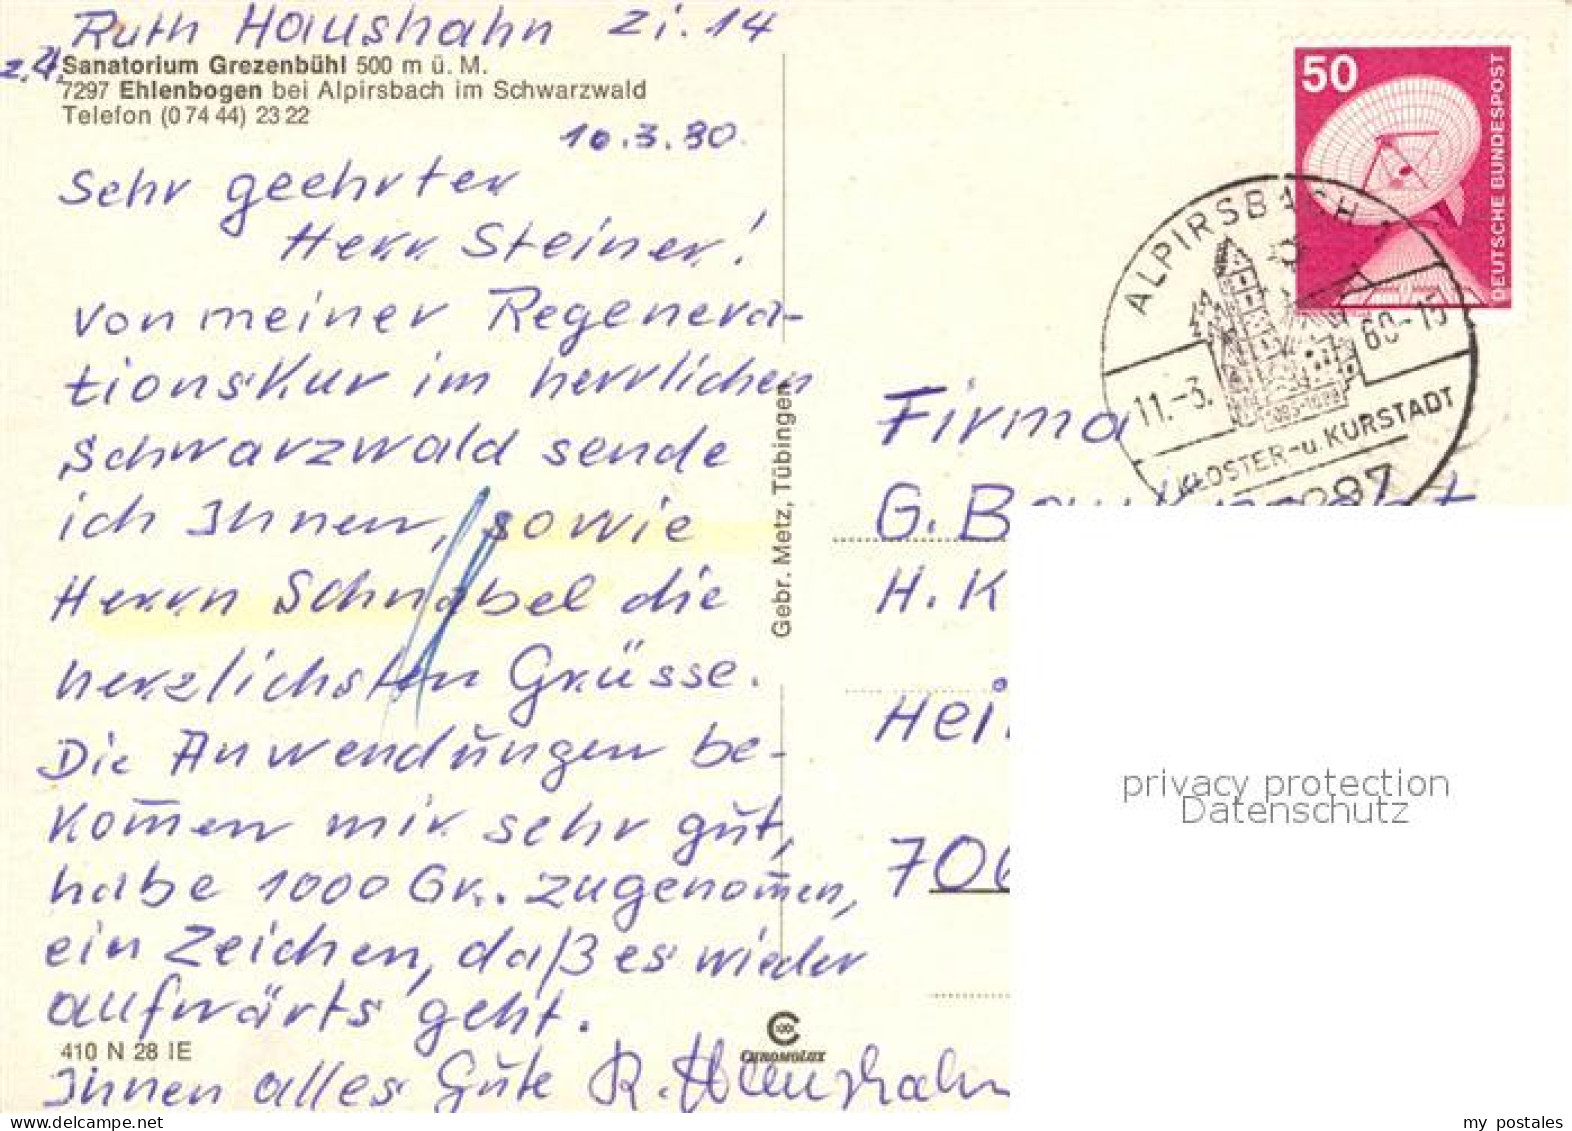 Ruth Haushahn Zi. 14
z. Zt.
Sanatorium Grezenbühl 500 m ü. M.
7297 Ehlenbogen bei Alpirsbach im Schwarzwald
Telefon (0 74 44) 23 22
10.3.80.
Sehr geehrter
Herr Steiner!
von meiner Regenera-
tionskur im herrlichen
Schwarzwald sende
ich Ihnen, sowie
Herrn Schnabel die
herzlichsten Grüsse.
Die Anwendungen be-
kom̄en mir sehr gut,
habe 1000 Gr. zugenom̄en,
ein Zeichen, daß es wieder
aufwärts geht.
410 N 28 IE
Ihnen alles Gute R. Haushahn
Gebr. Metz, Tübingen
CHROMOLUX
50
DEUTSCHE BUNDESPOST
ALPIRSBACH
11.-3. 80-15
KLOSTER-u. KURSTADT
7297
Firma
G.
H. K
Hei
706
privacy protection
Datenschutz
my postales